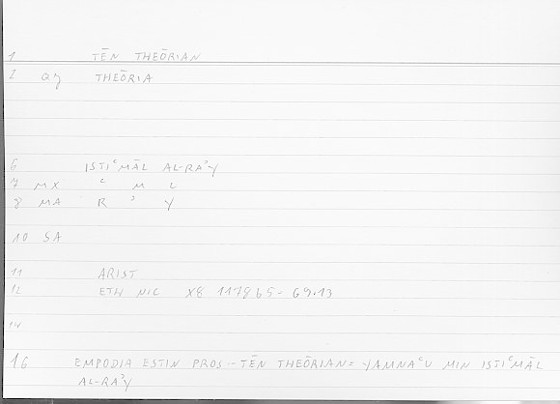 1 TĒN THEŌRIAN
2 az THEŌRIA
6 ISTIʿMĀL AL-RAʾY
7 MX ʿ M L
8 MA R ʾ Y
10 SA
11 ARIST
12 ETH NIC X8 1178b5 - 69.13
14
16 EMPODIA ESTIN PROS - TĒN THEŌRIAN = YAMNAʿU MIN ISTIʿMĀL
AL-RAʾY